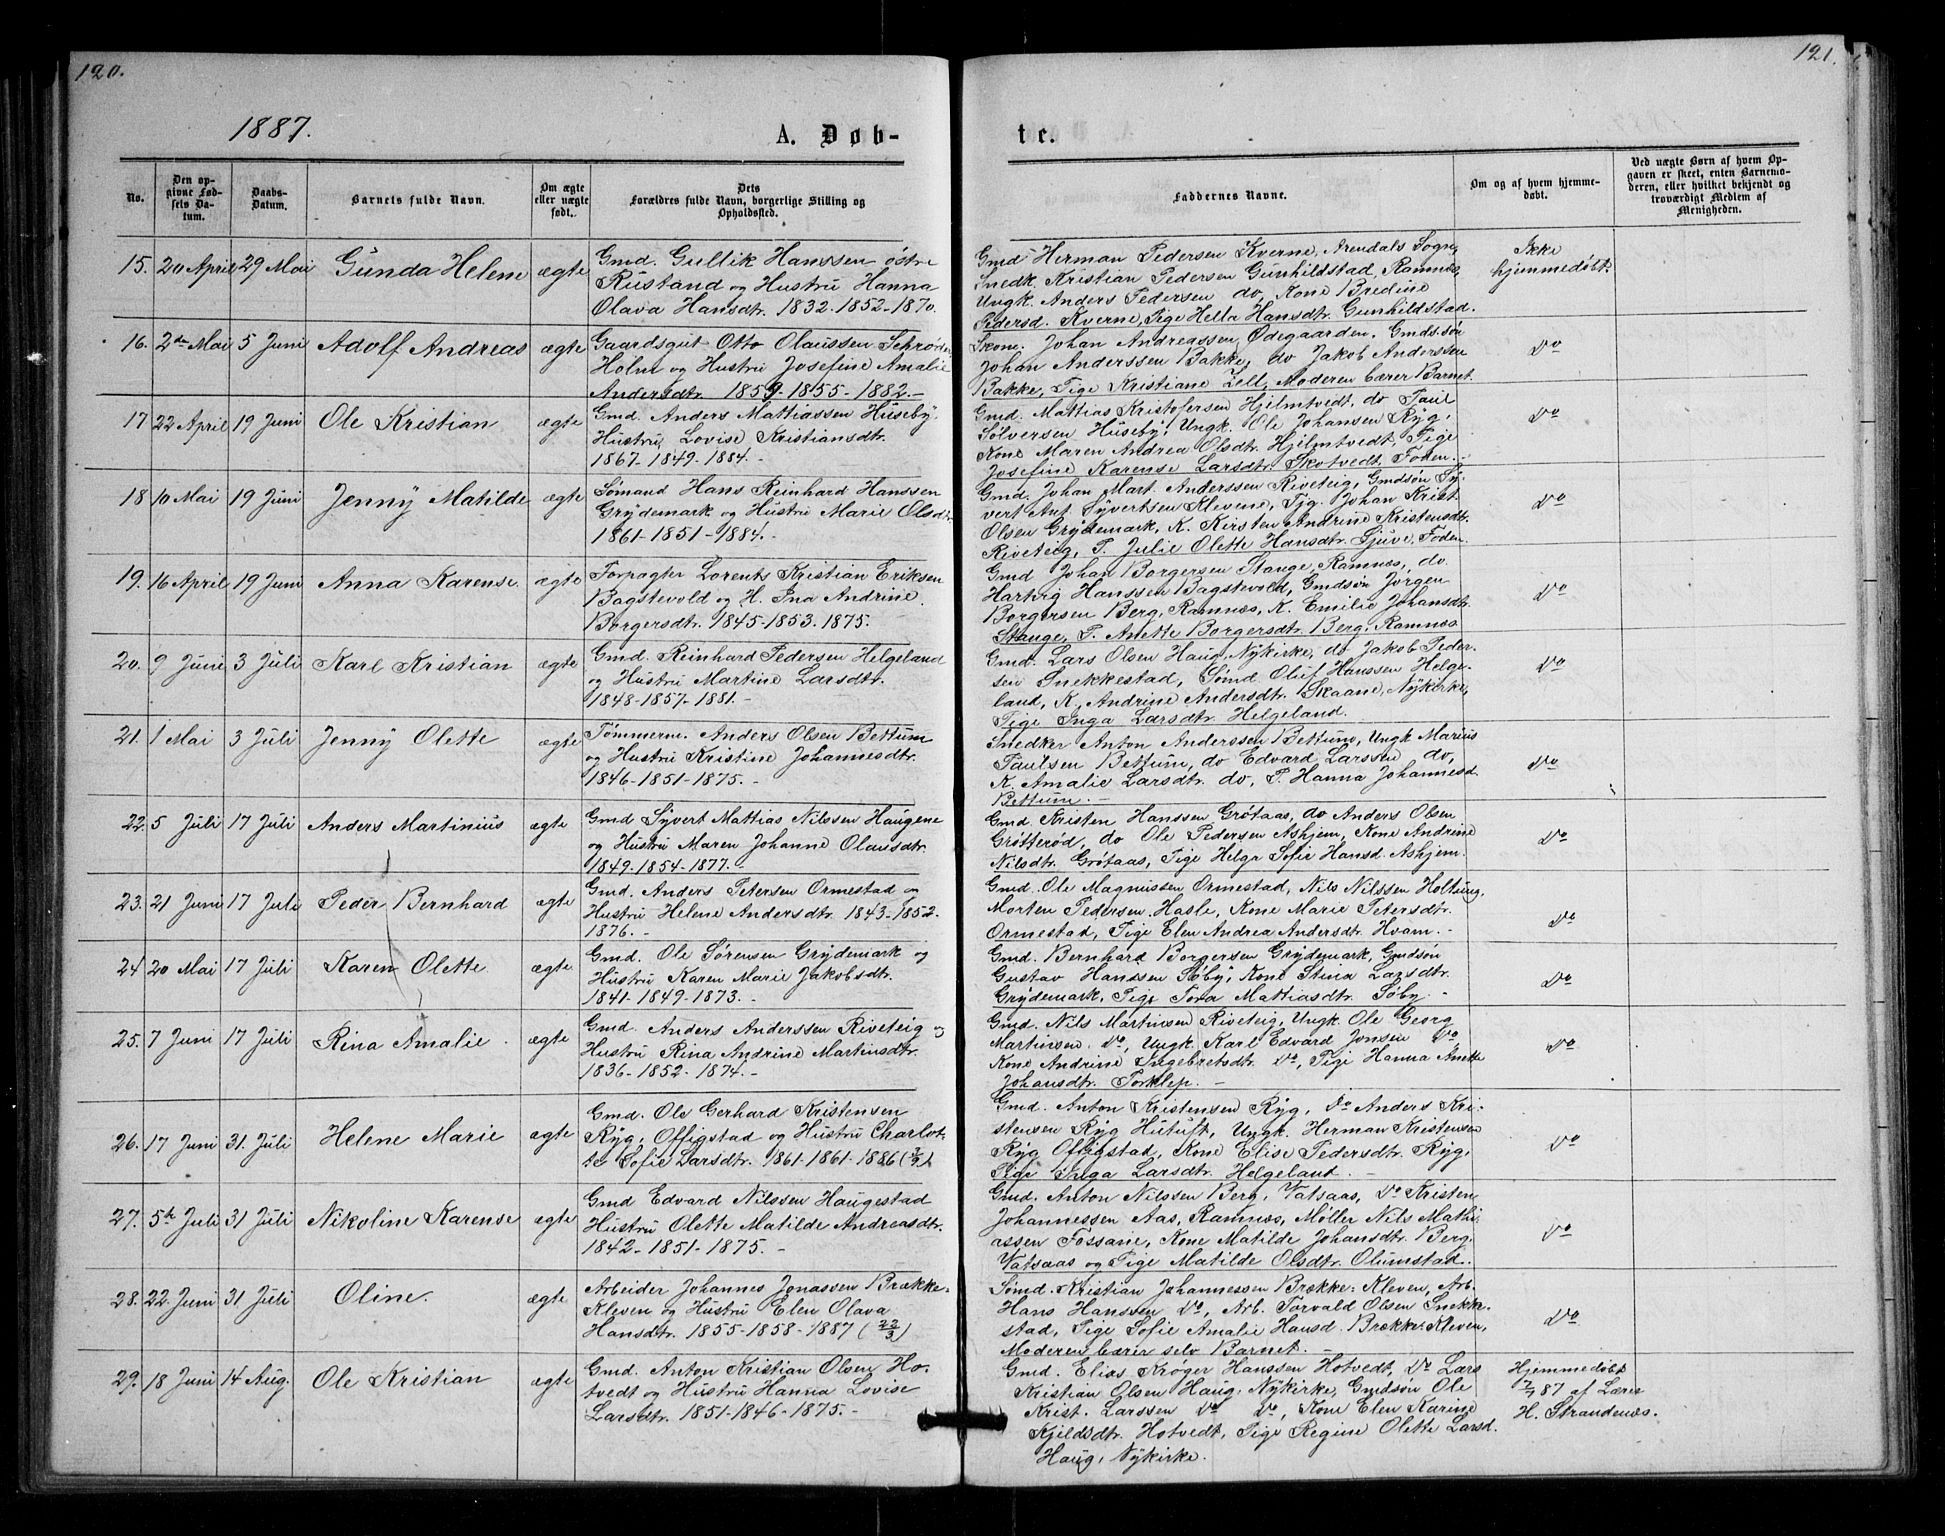 120.
1887.
A. Døb-
No.
Den op-
givne Fød-
sels Da-
tum.
Daabs-
Datum.
Barnets fulde Navn.
Om ægte
eller uægte
født.
Dets
Forældres fulde Navn, borgerlige Stilling og
Opholdssted.
15. 20 April 29 Mai Gunda Helene ægte Gmd. Gullik Hanssen østre
Rustand og Hustru Hanna
Olava Hansdtr. 1832-1852-1870.
16. 2den Mai 5 Juni Adolf Andreas ægte Gaardsgut Otto Olaussen Schrøder
Holm og Hustru Josefine Amalie
Andersdtr. 1859-1855-1882.-
17 22 April 19 Juni Ole Kristian ægte Gmd. Anders Mattiassen Huseby
Hustru Lovise Kristiansdtr.
1867-1849-1884.-
18 10 Mai 19 Juni Jenny Matilde ægte Sømand Hans Reinhard Hanssen
Grydemark og Hustru Marie Olsdtr
1861-1851-1884.-
19. 16 April 19 Juni Anna Karense ægte Forpagter Lorents Kristian Eriksen
Bagstevold og H. Ina Andrine
Borgersdtr. 1845-1853-1875.
20. 9 Juni 3 Juli Karl Kristian ægte Gmd. Reinhard Pedersen Helgeland
og Hustru Martine Larsdtr.
1848-1857-1881.-
21. 1 Mai 3 Juli Jenny Olette ægte Tømmerm. Anders Olsen Bettum
og Hustru Kristine Johannesdtr
1846-1851-1875.-
22. 5 Juli 17 Juli Anders Martinius ægte Gmd Syvert Mattias Nilssen Haugene
og Hustru Maren Johanne Olausdtr.
1849-1854-1877.-
23. 21 Juni 17 Juli Peder Bernhard ægte Gmd. Anders Petersen Ormestad og
Hustru Helene Andersdtr. 1843-1852-
1876.-
24 20 Mai 17 Juli Karen Olette ægte Gmd. Ole Sørensen Grydemark og
Hustru Karen Marie Jakobsdtr.
1841-1849-1873.-
25. 7 Juni 17 Juli Rina Amalie ægte Gmd. Anders Anderssen Riveteig og
Hustru Rina Andrine Martinsdtr.
1836-1852-1874.-
26. 17 Juni 31. Juli Helene Marie ægte Gmd. Ole Gerhard Kristensen
Ryg, Offigstad og Hustru Charlot-
te Sofie Larsdtr. 1861-1861-1886
27. 5te Juli 31 Juli Nikoline Karense ægte Gmd Edvard Nilssen Haugestad
Hustru Olette Matilde Andreasdtr.
1842-1851-1875.-
28. 22 Juni 31 Juli Oline. ægte Arbeider Johannes Jonassen Brække-
Kleven og Hustru Elen Olava
Hansdtr. 1855-1858-1887 (22/3)
29. 18 Juni 14 Aug. Ole Kristian ægte Gmd. Anton Kristian Olsen Ho-
tvedt og Hustru Hanna Lovise
Larsdtr. 1851-1846-1875.-
121.
te.
Faddernes Navne.
Om og af hvem hjemme-
døbt.
Ved uægte Børn af hvem Op-
gaven er skeet, enten Barnemo-
deren, eller hvilket bekjendt og
troværdigt Medlem af
Menigheden.
Gmd Herman Pedersen Kverne, Arendals Sogn, Ikke
Snedk. Kristian Pedersen Gunhildstad, Ramnæs hjemmedøbt.
Ungk. Anders Pedersen do, Kone Bredine
Pedersd. Kverne, Pige Hella Hansdtr. Gunhildstad.
Skom. Johan Andreassen Ødegaarden, Gmds.søn
Johan Anderssen Bakke, do Jakob Anderssen Do
Bakke, Pige Kristiane Zell, Moderen bærer Barnet.
Gmd. Mattias Kristofersen Hjelmtvedt, do Paul
Sølversen Huseby, Ungk. Ole Johansen Ryg, Do
Kone Maren Andrea Olsdtr. Hjelmtvedt, Pige
Josefine Karense Larsdtr. Skotvedt, Foden.-
Gmd. Johan Mart. Anderssen Riveteig, Gmdsøn Sy-
vert Ant. Syvertsen Klevene, Tjg. Johan Krist. Do
Olsen Grydemark, K. Kirsten Andrine Kristensdtr.
Riveteig, P. Julie Olette Hansdtr. Sjuve, Foden.
Gmd Johan Borgersen Stange, Ramnæs, do
Hartvig Hanssen Bagstevold, Gmdsøn Jørgen Do
Borgersen Berg, Ramnæs, K. Emilie Johansdtr.
Stange, P. Anette Borgersdtr. Berg, Ramnæs
Gmd. Lars Olsen Haug, Nykirke, do Jakob Peder-
sen Snekkestad, Sømd Oluf Hanssen Helge- Do
land, K. Andrine Andersdtr. Skaane, Nykirke,
Pige Inga Larsdtr. Helgeland.
Snedker Anton Anderssen Bettum, Ungk Marius
Paulsen Bettum, do Edvard Larssen do, Do
K. Amalie Larsdtr. do, P. Hanna Johannesd.
Bettum.-
Gmd. Kristen Hanssen Grøtaas, do Anders Olsen
Grøtterød, do Ole Pedersen Ashjem, Kone Andrine Do
Nilsdtr. Grøtaas, Pige Helga Sofie Hansd. Ashjem.
Gmd. Ole Magnussen Ormestad, Nils Nilssen Holtung,
Morten Pedersen Hasle, Kone Marie Petersdtr. Do
Ormestad, Pige Elen Andrea Andersdtr. Hvam.-
Gmd. Bernhard Borgersen Grydemark, Gmdsøn
Gustav Hanssen Søby, Kone Stina Larsdtr. Do
Grydemark, Pige Tora Mattiasdtr. Søby -
Gmd. Nils Martinsen Riveteig, Ungk. Ole Georg
Martinsen Do, Ungk. Karl Edvard Jonsen Do Do
Kone Andrine Ingebretsdtr. Do, Pige Hanna Anette
Johansdtr. Torklep.-
Gmd. Anton Kristensen Ryg, Do Anders Kri-
stensen Ryg Hutuft, Ungk. Herman Kristensen Do
Ryg Offigstad, Kone Elise Pedersdtr. Ryg,
Pige Inga Larsdtr. Helgeland.-
Gmd. Anton Nilssen Berg, Vatsaas, Do Kristen
Johannessen Aas, Ramnæs, Møller Nils Mathi- Do
assen Fossane, Kone Matilde Johansdtr. Berg,
Vatsaas og Pige Matilde Olsdtr. Olumstad.
Sømd. Kristian Johannessen Brække-Kleven, Arb.
Hans Hanssen Do, Arb. Torvald Olsen Snekke- Do
stad, Pige Sofie Amalie Hansd. Brække-Kleven,
Moderen bærer selv Barnet.-
Gmd. Elias Krøger Hanssen Hotvedt, Do Lars Hjemmedøbt
Kristian Olsen Haug, Nykirke, Gmdsøn Ole 2/7 87 af Lærer
Krist. Larssen Do Do, Kone Elen Karine H. Strandenæs.
Kjeldsdtr. Hotvedt, Pige Regine Olette Larsd.
Haug, Nykirke.